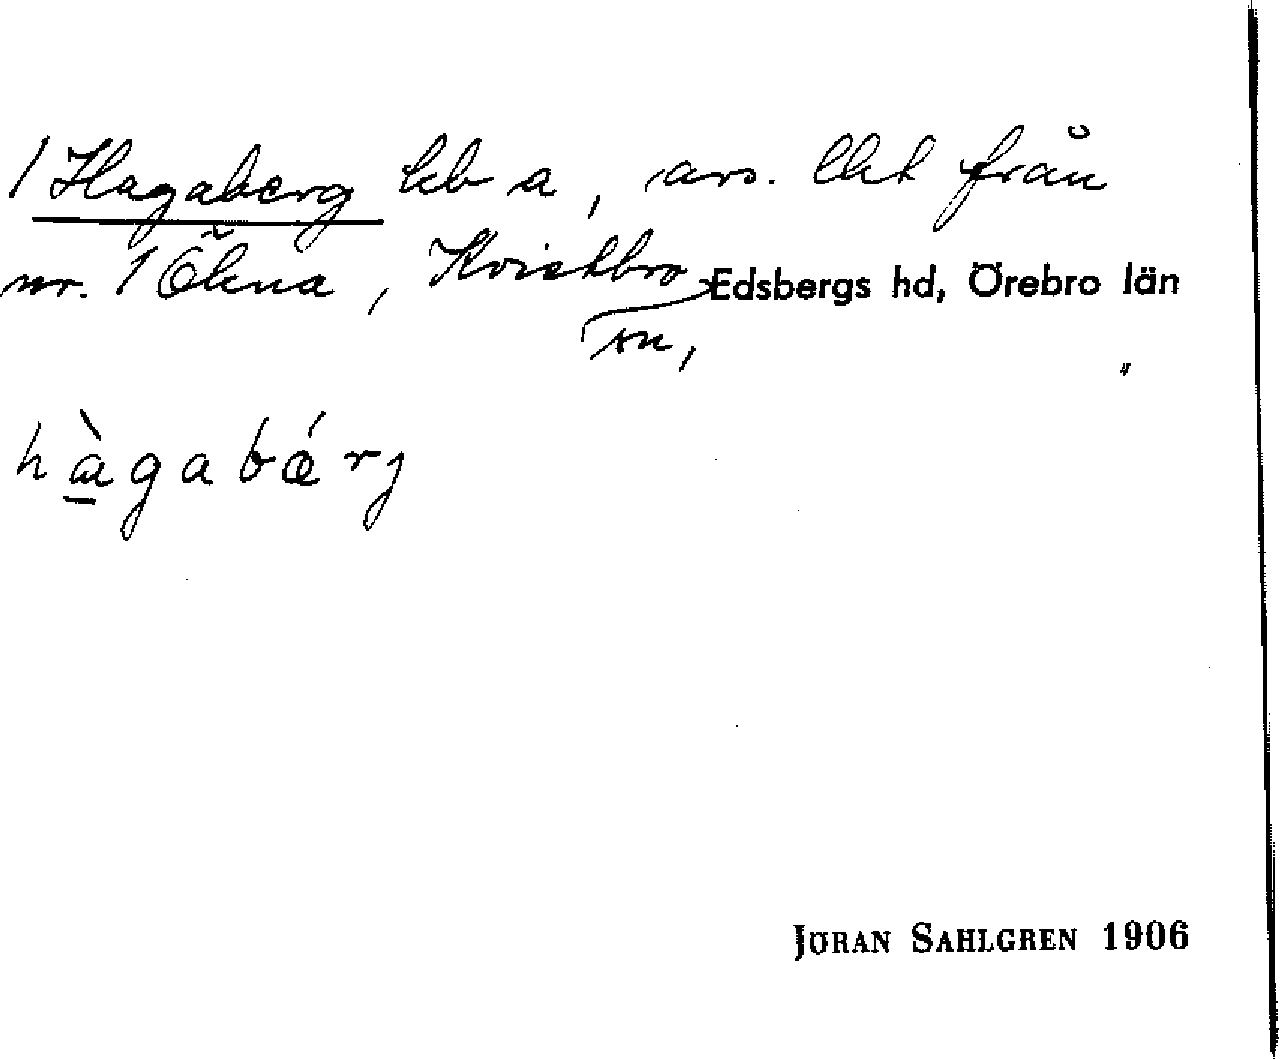 / Hagaberg kb a, avs. lht från
nr. 1 Ökna, Kvistbro
sn, Edsbergs hd, Örebro län
"
hàgabǽrj
JÖRAN SAHLGREN 1906